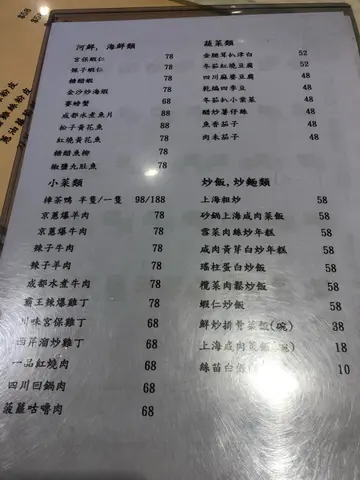 河鮮, 海鮮類
宮保蝦仁 78
辣子蝦仁 78
糖醋蝦 78
金沙炒海蝦 78
賽螃蟹 68
成都水煮魚片 88
松子黃花魚 88
紅燒黃花魚 78
糖醋魚柳 78
椒鹽九肚魚 78
小菜類
樟茶鴨 半隻/一隻 98/188
京蔥爆羊肉 78
京蔥爆牛肉 78
辣子牛肉 78
辣子羊肉 78
成都水煮牛肉 78
霸王辣爆雞丁 78
川味宮保雞丁 68
西芹溜炒雞丁 68
一品紅燒肉 68
四川回鍋肉 68
菠蘿咕嚕肉 68
蔬菜類
金腿茸扒津白 52
冬菇紅燒豆腐 52
四川麻婆豆腐 48
乾煸四季豆 48
冬菇扒小棠菜 48
醋炒薯仔絲 48
魚香茄子 48
肉未茄子 48
炒飯,炒麵類
上海粗炒 58
砂鍋上海咸肉菜飯 58
雪菜肉絲炒年糕 58
咸肉黃芽白炒年糕 58
瑤柱蛋白炒飯 58
欖菜肉鬆炒飯 58
蝦仁炒飯 58
鮮炒排骨菜飯(碗) 38
上海咸肉菜飯(碗) 18
絲苗白飯 10